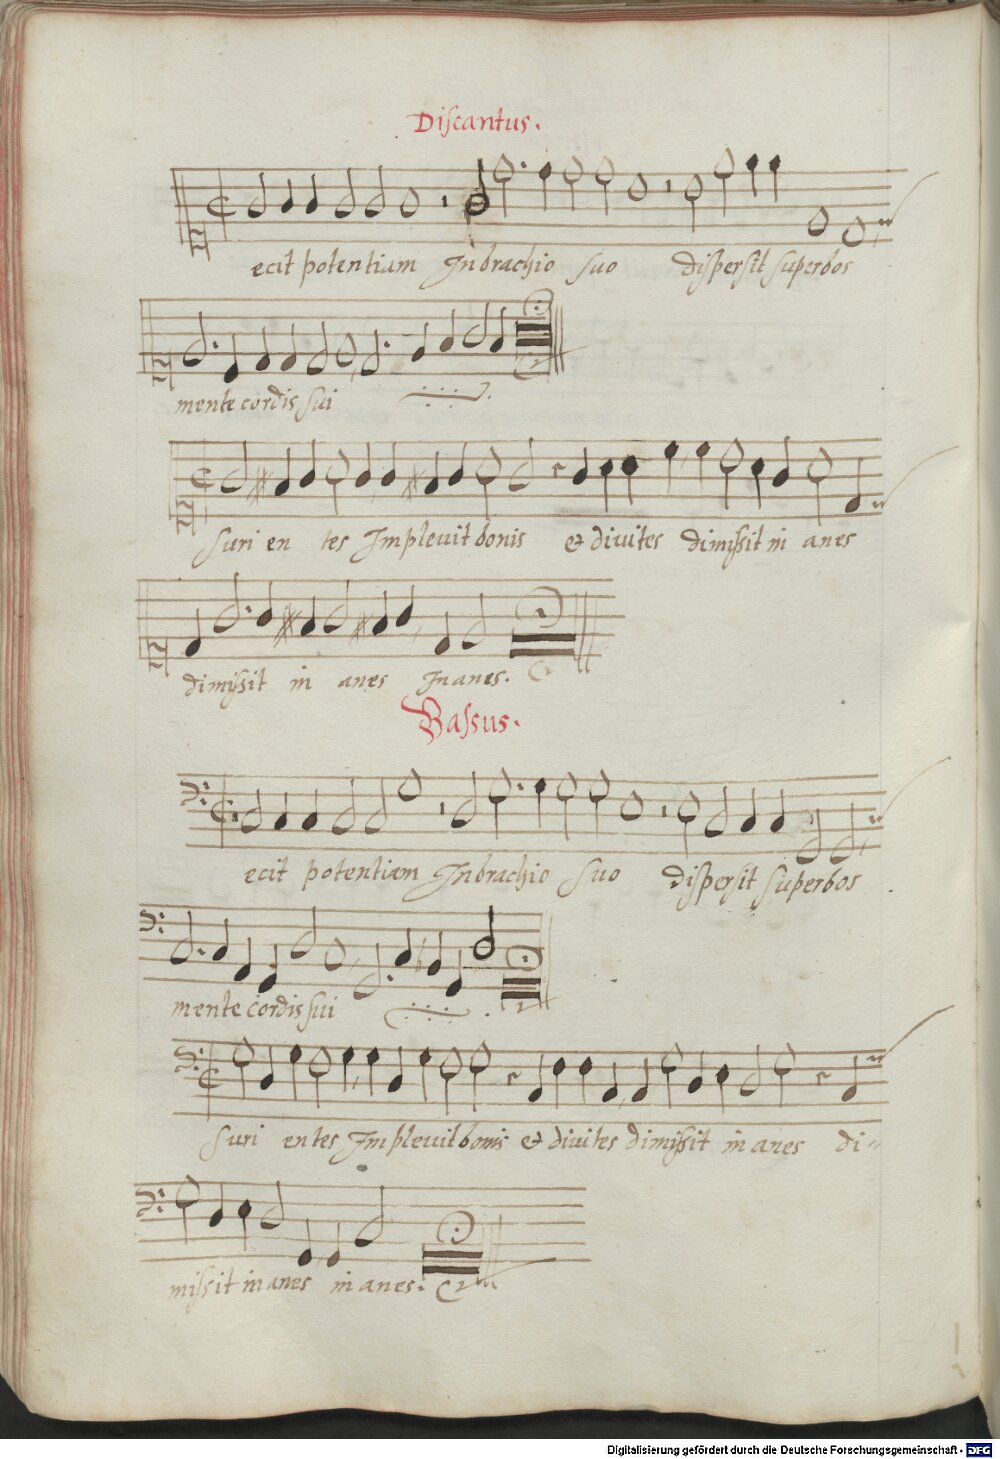 Discantus.
ecit potentiam In brachio suo dispersit superbos
mente cordis sui
Suri en tes Implevit bonis & divites dimissit in anes
dimissit in anes Inanes.
Bassus.
ecit potentiam In brachio suo dispersit superbos
mente cordis sui
Suri entes Implevit bonis & divites dimissit in anes di-
missit in anes in anes.
Digitalisierung gefördert durch die Deutsche Forschungsgemeinschaft - DFG